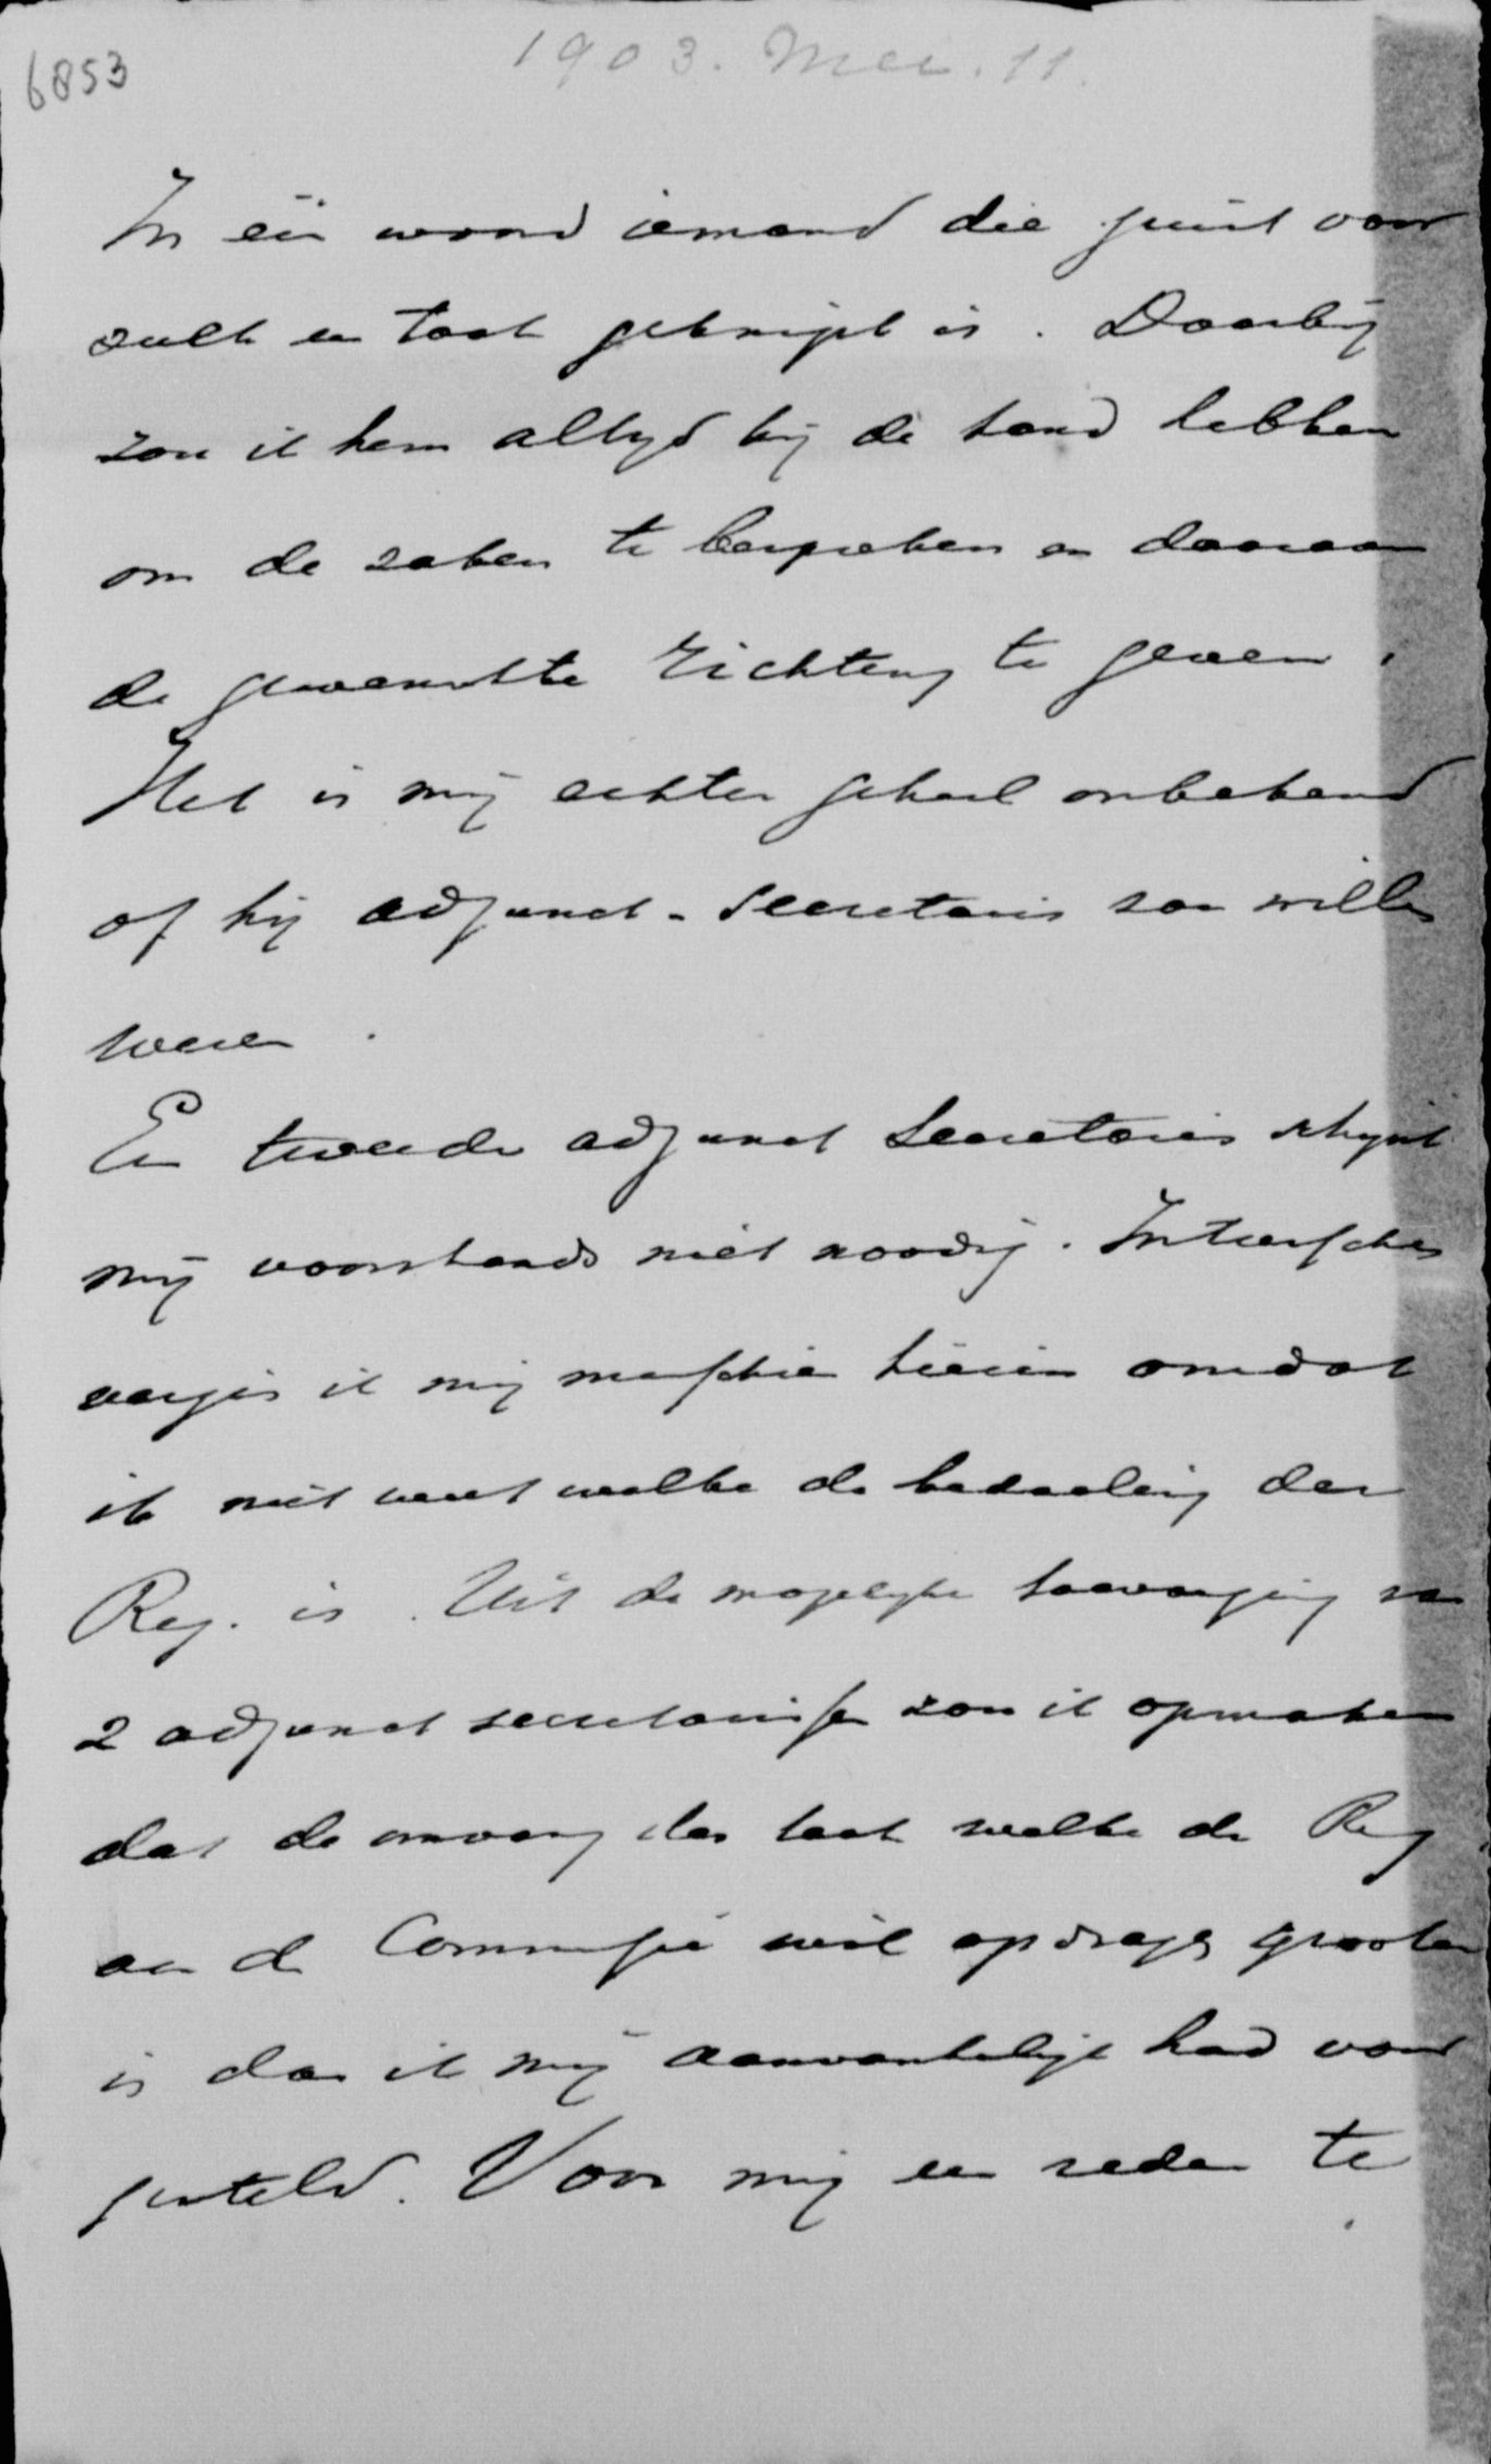 6853
1903. Mei. 11.
In één woord iemand die juist voor
zulk een taak geknipt is. Daarbij
zou ik hem altyd bij de hand hebben
om de zaken te bespreken en daaraan
de gewenschte richting te geven.
Het is mij echter geheel onbekend
of hij adjunct-Secretaris zou willen
wezen.
Een tweede adjunct Secretaris schynt
mij voorshands niet noodig. Intusschen
vergis ik mij misschien hierin omdat
ik niet weet welke de bedoeling der
Reg. is. Uit de mogelyke toevoeging van
2 adjunct secretarissen zou ik opmaken
dat de omvang der taak welke de Reg
aan de Commissie wil opdragen grooter
is dan ik mij aanvankelyk had voor
gesteld. Voor mij een reden te